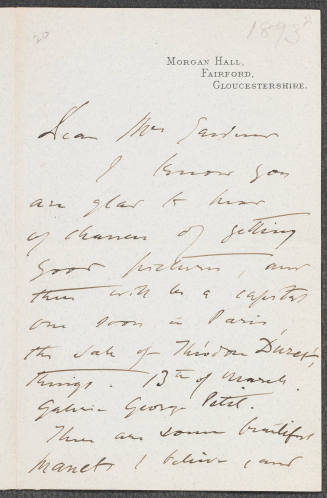 20
1893?
Morgan Hall,
Fairford,
Gloucestershire.
Dear Mrs Gardner
I know you
are glad to hear
of chances of getting
good pictures, and
there will be a capital
one soon in Paris
the sale of Théodore Duret's
things. 13th of March.
Galerie George Petit.
There are some beautiful
Manets I believe, and